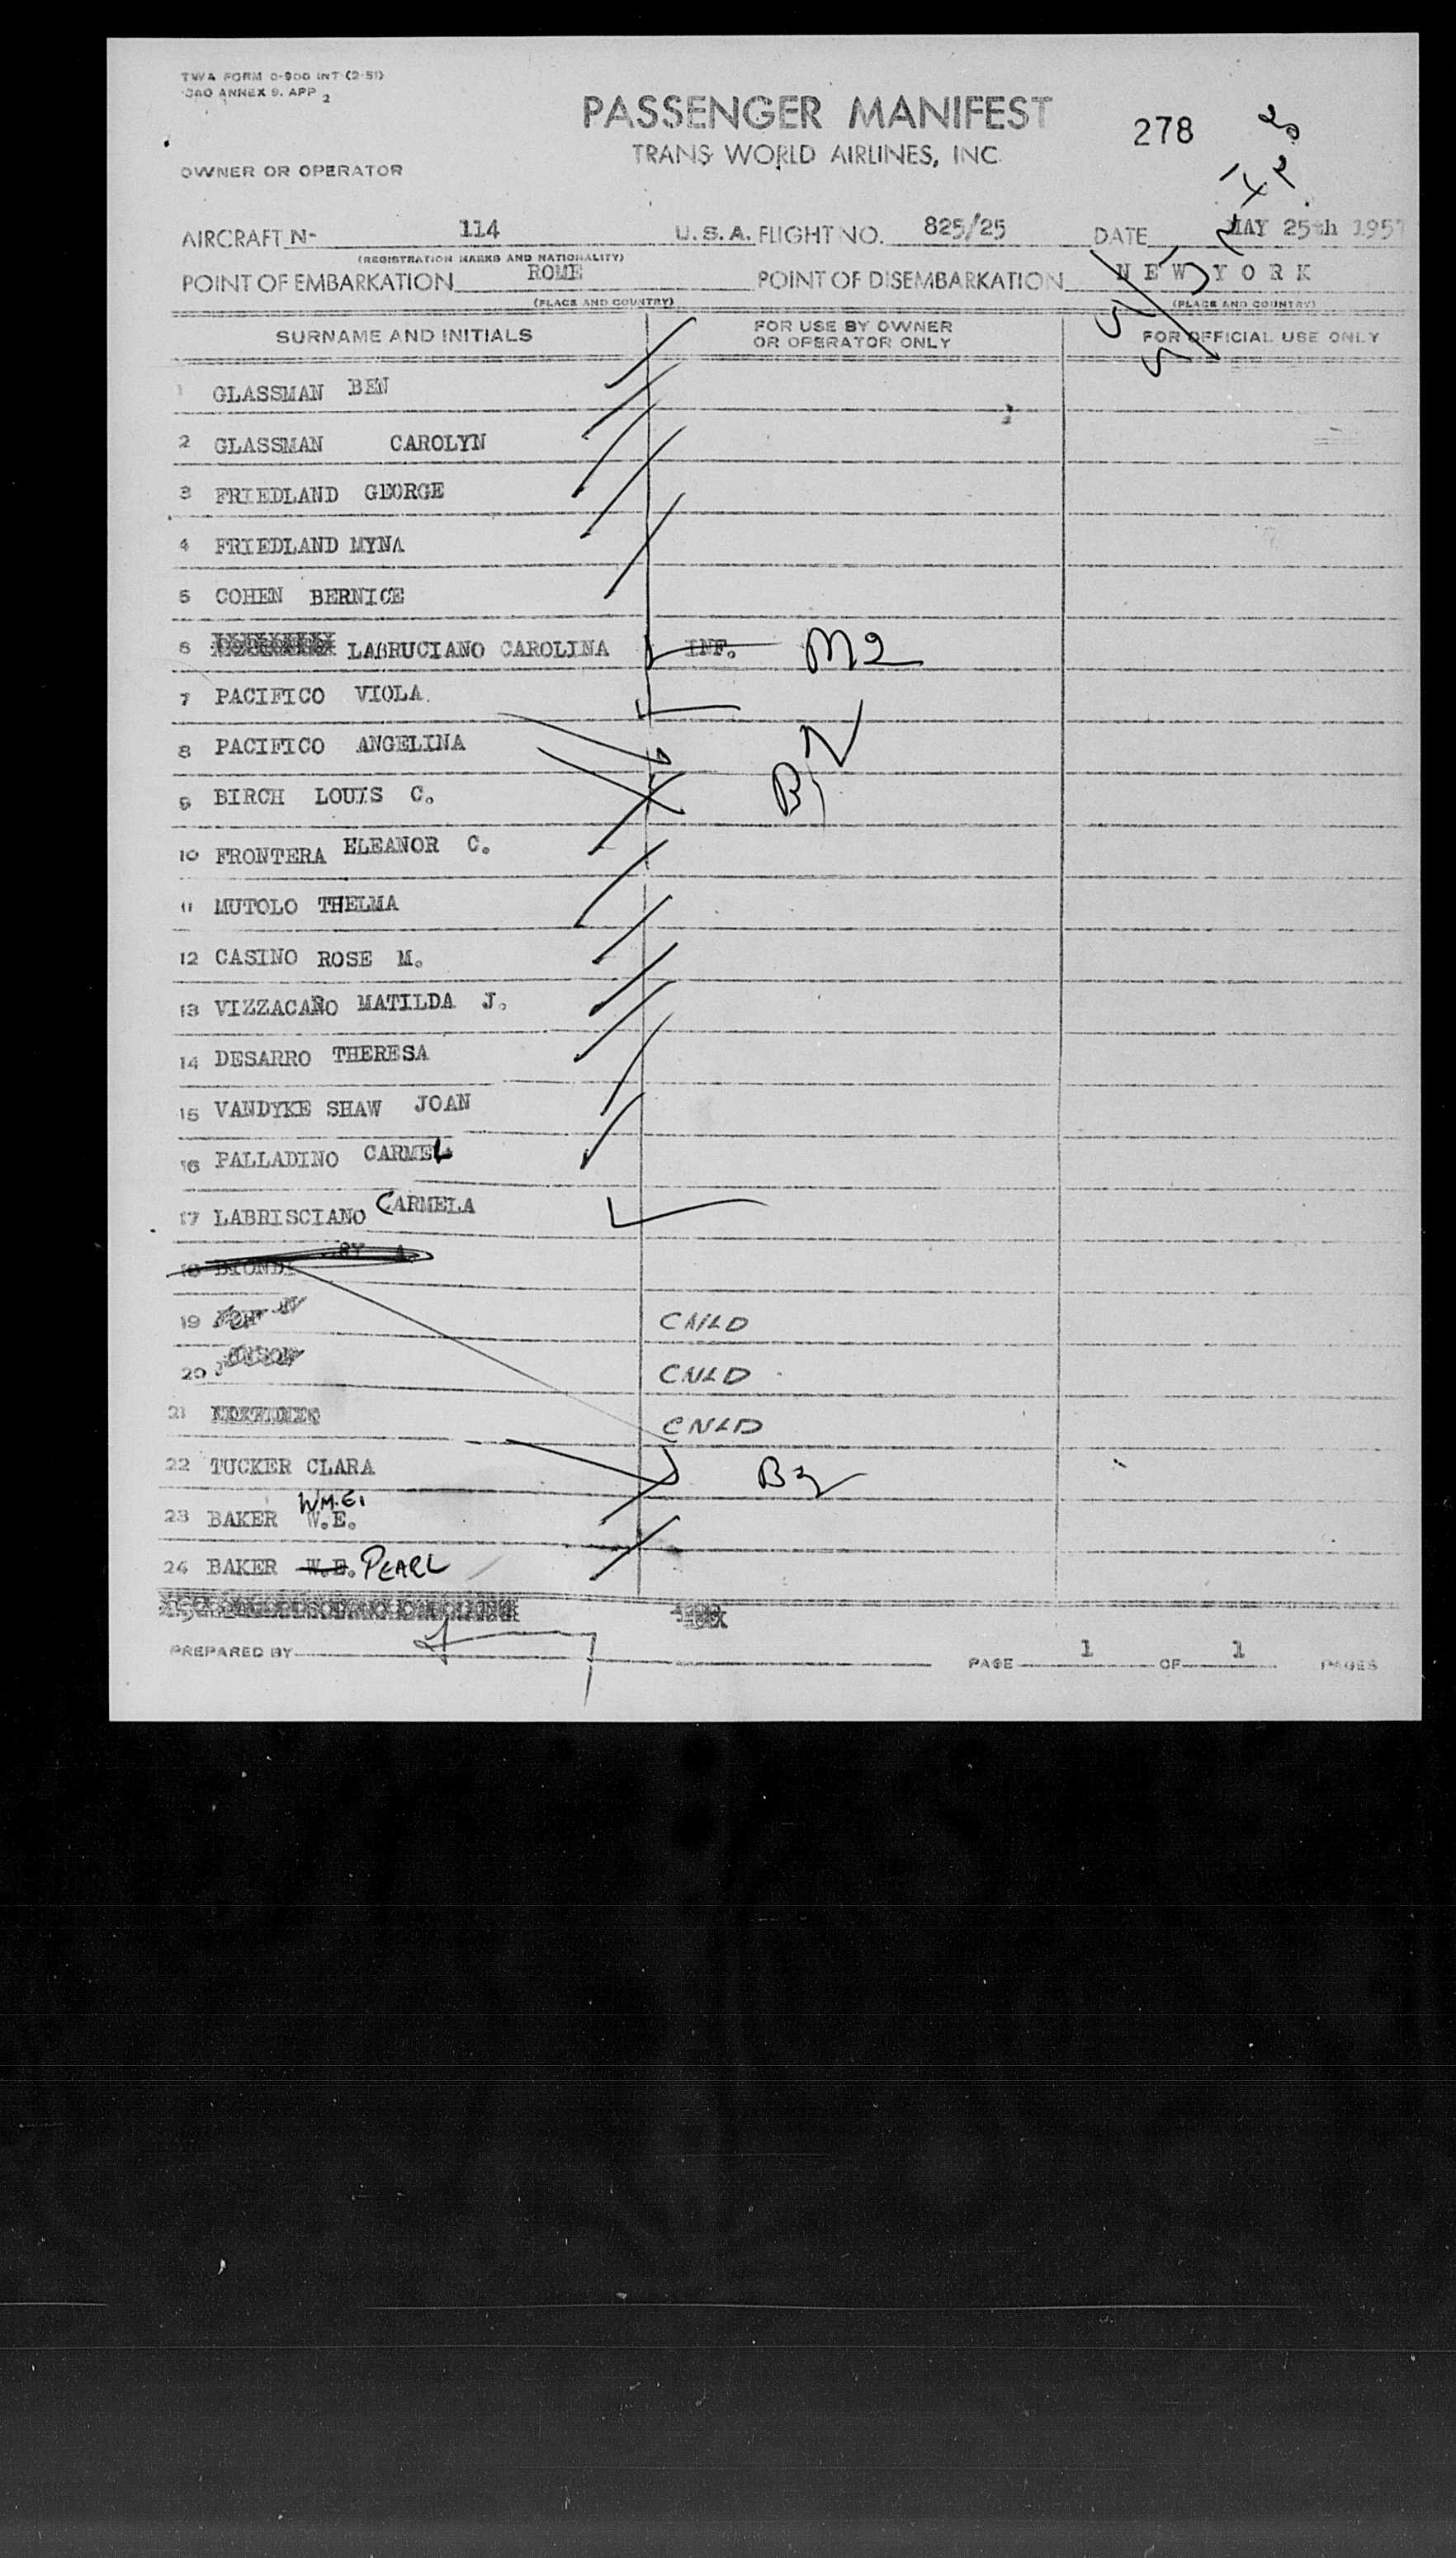 TWA FORM 0-900 INT (2-51)
ICAO ANNEX 9. APP 2
PASSENGER MANIFEST
278
TRANS WORLD AIRLINES, INC
OWNER OR OPERATOR
AIRCRAFT N- 114 U.S.A. FLIGHT NO. 825/25 DATE MAY 25th 1957
(REGISTRATION MARKS AND NATIONALITY)
POINT OF EMBARKATION ROME POINT OF DISEMBARKATION NEW YORK
(PLACE AND COUNTRY) (PLACE AND COUNTRY)
SURNAME AND INITIALS FOR USE BY OWNER OR OPERATOR ONLY FOR OFFICIAL USE ONLY
1 GLASSMAN BEN
2 GLASSMAN CAROLYN
3 FRIEDLAND GEORGE
4 FRIEDLAND MYNA
5 COHEN BERNICE
6 LABRUCIANO CAROLINA INF. M2
7 PACIFICO VIOLA.
8 PACIFICO ANGELINA
9 BIRCH LOUIS C.
10 FRONTERA ELEANOR C.
11 MUTOLO THELMA
12 CASINO ROSE M.
13 VIZZACARO MATILDA J.
14 DESARRO THERESA
15 VANDYKE SHAW JOAN
16 PALLADINO CARMEL
17 LABRISCIANO CARMELA
18 BIONDI
19 CHILD
20 CHILD
21 CHILD
22 TUCKER CLARA B2
WM.E.
23 BAKER W.E.
24 BAKER W.E. PEARL
PREPARED BY
PAGE 1 OF 1 PAGES